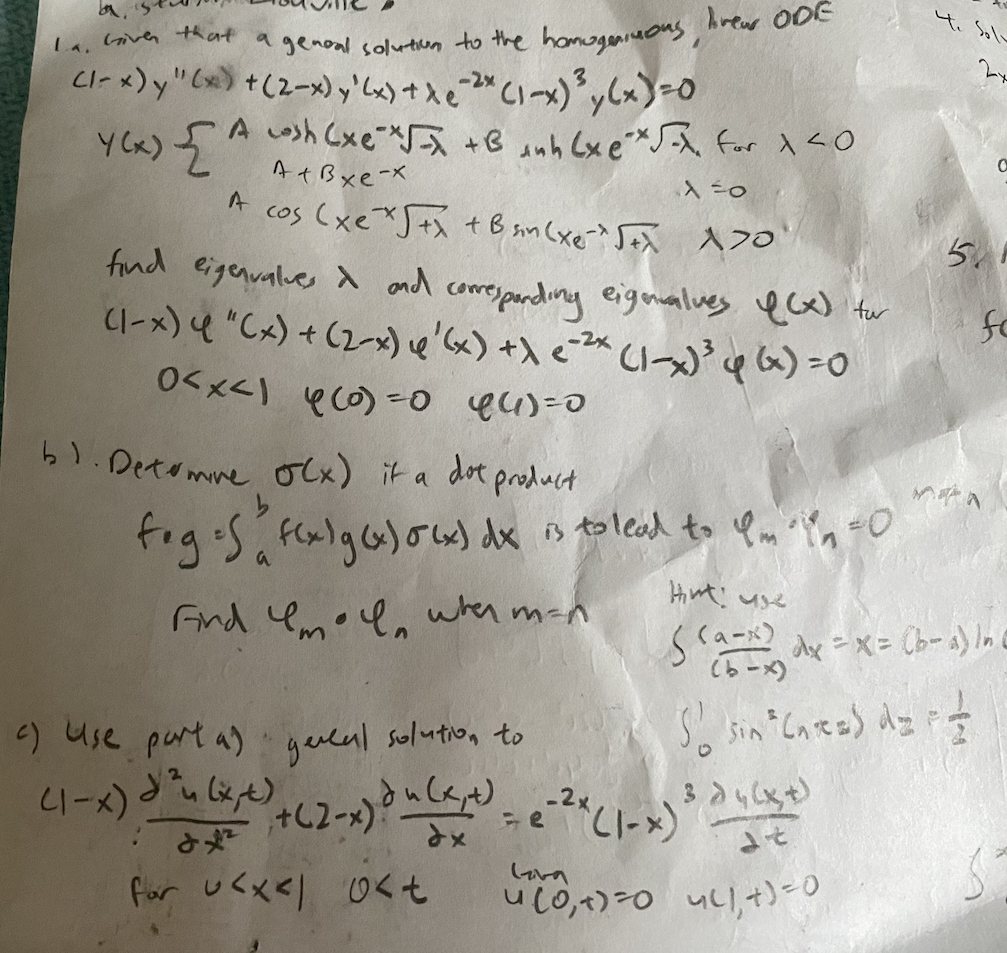 1a. Given that a general solution to the homogeniuous, linear ODE
(1-x)y''(x) + (2-x)y'(x) + λe^{-2x}(1-x)^3 y(x)=0
y(x) { A cosh(xe^{-x}√-λ + B sinh(xe^{-x}√-λ, for λ<0
A+Bxe^{-x} λ=0
A cos(xe^{-x}√+λ + B sin(xe^{-x}√+λ λ>0
find eigenvalues λ and corresponding eigenvalues φ(x) for
(1-x)φ''(x) + (2-x)φ'(x) + λe^{-2x}(1-x)^3 φ(x)=0
0<x<1 φ(0)=0 φ(1)=0
b). Determine σ(x) if a dot product
f∘g = ∫_a^b f(x)g(x)σ(x)dx is to lead to φ_m · φ_n = 0 m≠n
Find φ_m • φ_n when m=n
Hint: use
∫ (a-x)/(b-x) dx = x = (b-a) ln
∫_0^1 sin^2(nπz) dz = 1/2
c) Use part a) general solution to
(1-x) ∂^2u(x,t)/∂x^2 + (2-x) ∂u(x,t)/∂x = e^{-2x}(1-x)^3 ∂u(x,t)/∂t
for 0<x<1 0<t given u(0,t)=0 u(1,t)=0
4. Solv
2x
5.